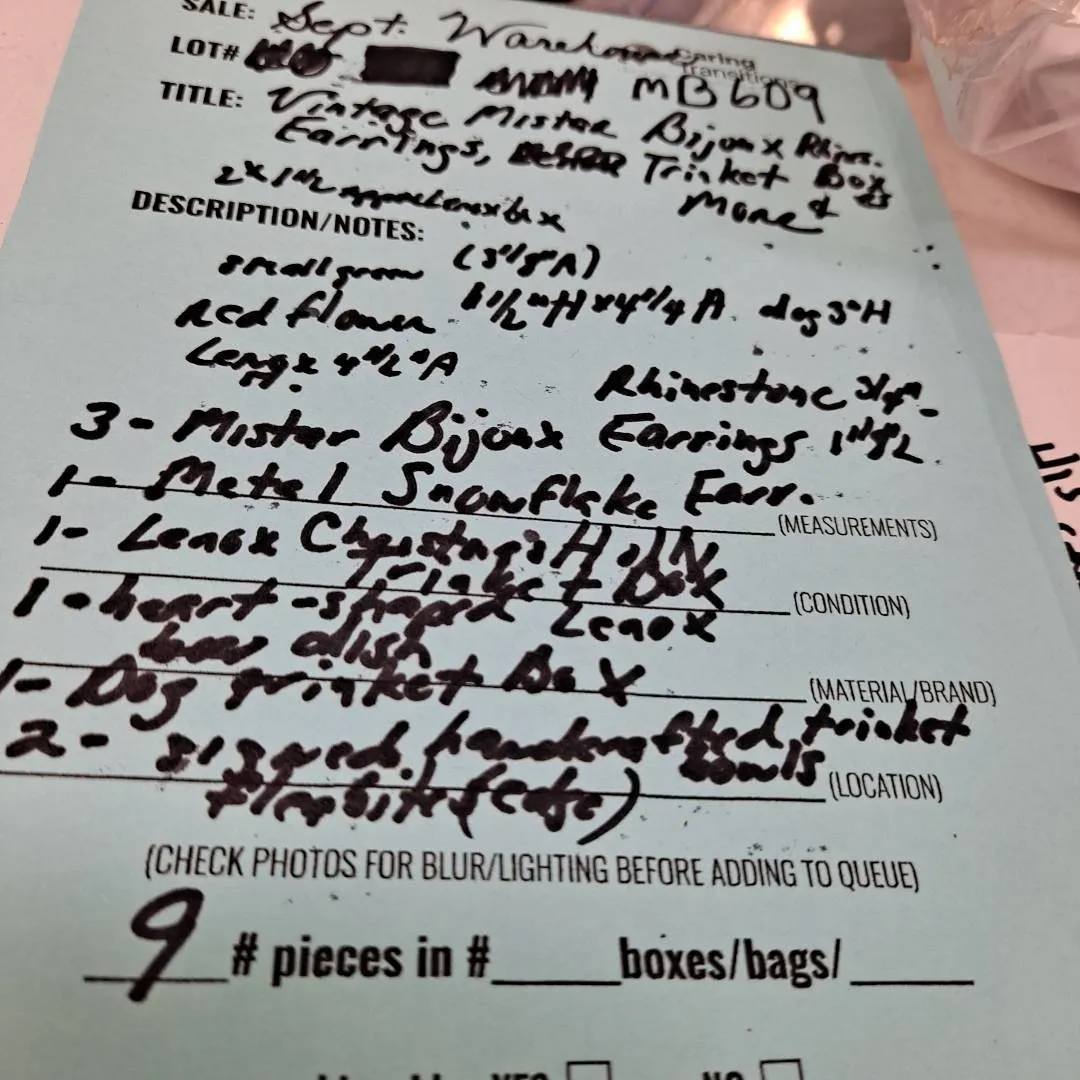 SALE: Sept. Warehouse
Caring
Transitions
LOT# MB609
TITLE: Vintage Mister Bijoux Rhins.
Earrings, Trinket Box
& More
2" x 1 1/2 approx Lenox box
DESCRIPTION/NOTES:
small green
Red flower dog 3" H
Lenox
Rhinestone
3 - Mister Bijoux Earrings
1 - Metal Snowflake Earr.
(MEASUREMENTS)
1 - Lenox Christmas Holly
Trinket Box
(CONDITION)
1 - heart-shaped Lenox
dish
(MATERIAL/BRAND)
1 - Dog Trinket Box
2 - signed, handcrafted trinket
bowls
(LOCATION)
fleabites (edge)
(CHECK PHOTOS FOR BLUR/LIGHTING BEFORE ADDING TO QUEUE)
9 # pieces in # boxes/bags/
YES NO